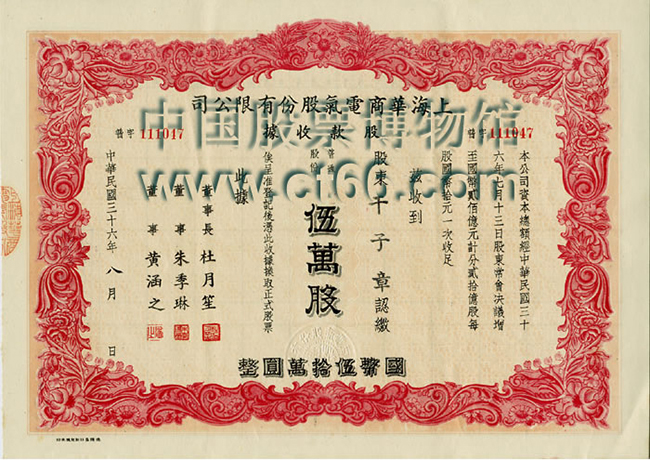 上海華商電氣股份有限公司
股款收據
中国股票博物馆
www.cf60.com
字 111047 號
字 111047 號
本公司資本總額經中華民國三十
六年七月十三日股東常會決議增
至國幣貳佰億元計分貳拾億股每
股國幣拾元一次收足
茲收到
股東千子章認繳
伍萬股
俟呈准登記後憑此收據換取正式股票
此據
國幣伍拾萬圓整
董事長 杜月笙
董事 朱季琳
董事 黃涵之
中華民國三十六年八月 日